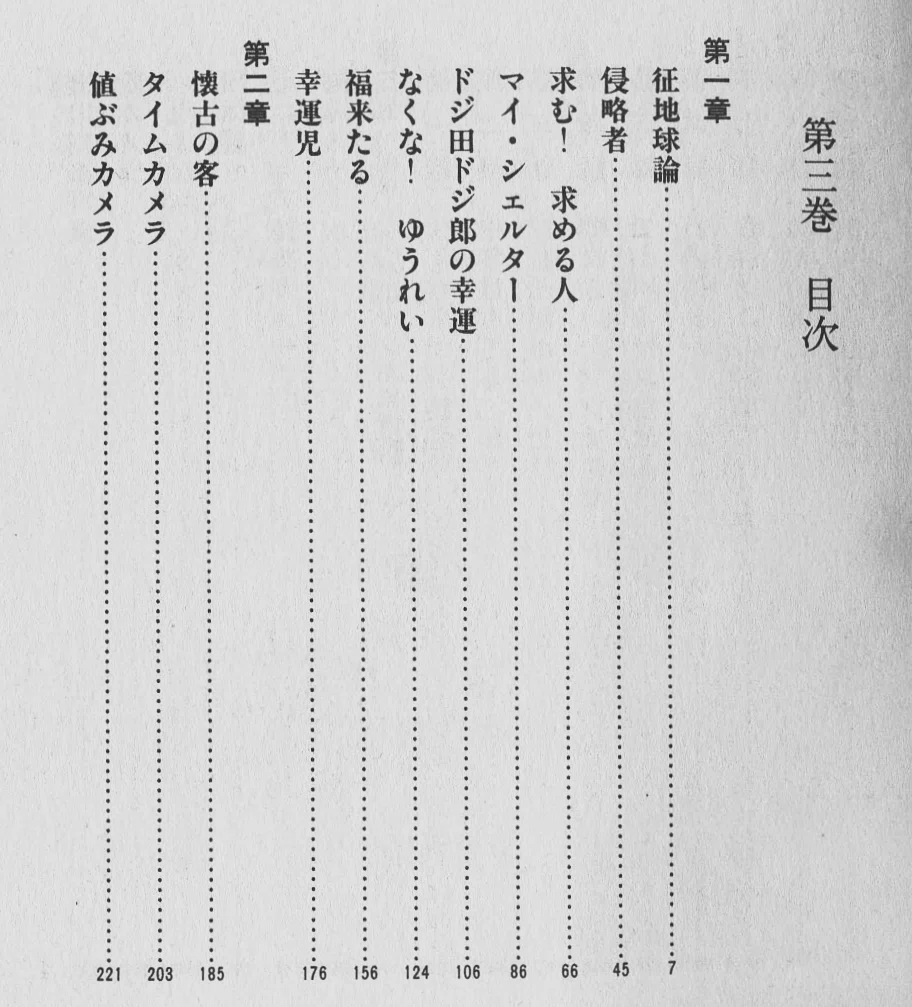 第三巻　目次
第一章
征地球論……7
侵略者……45
求む！　求める人……66
マイ・シェルター……86
ドジ田ドジ郎の幸運……106
なくな！　ゆうれい……124
福来たる……156
幸運児……176
第二章
懐古の客……185
タイムカメラ……203
値ぶみカメラ……221